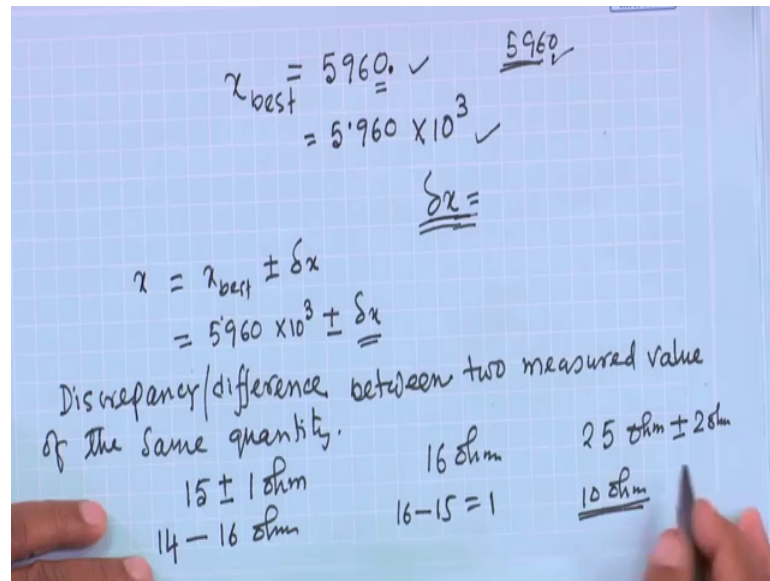 x best = 5960. ✓ 5960 ✓
= 5.960 × 10³ ✓
δx =
x = x best ± δx
= 5.960 × 10³ ± δx
Discrepancy/difference between two measured value
of the same quantity.
15 ± 1 ohm 16 ohm 25 ohm ± 2 ohm
14 – 16 ohm 16 – 15 = 1 10 ohm